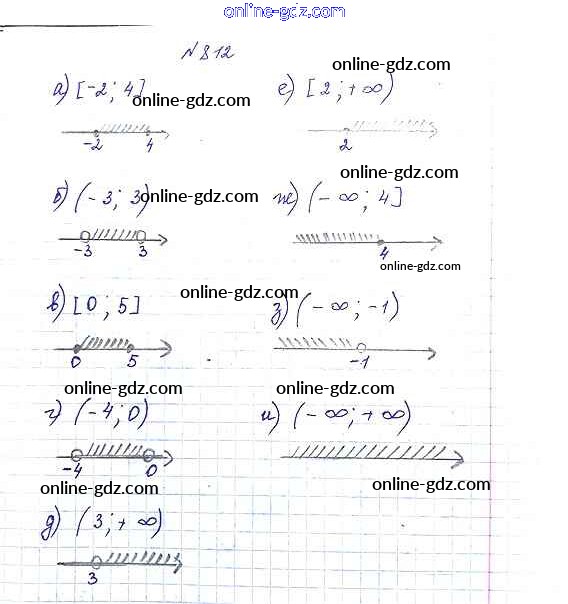 online-gdz.com
N 812
а) [-2; 4] online-gdz.com
-2 4
online-gdz.com
е) [2; +∞)
2
б) (-3; 3) online-gdz.com
-3 3
online-gdz.com
ж) (-∞; 4]
4
online-gdz.com
в) [0; 5] online-gdz.com
0 5
з) (-∞; -1)
-1
online-gdz.com
г) (-4; 0)
-4 0
online-gdz.com
и) (-∞; +∞)
online-gdz.com
online-gdz.com
д) (3; +∞)
3